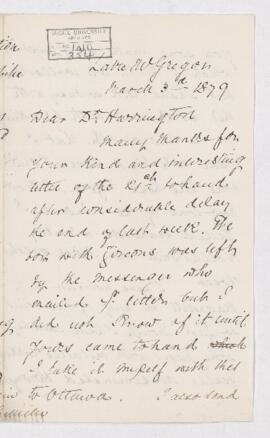 McGILL UNIVERSITY
ARCHIVES
Lake McGregor
March 3rd 1879
Dear Dr Harrington
Many thanks for
your kind and interesting
letter of the 21st to hand
after considerable delay
the end of last week. The
box with Zircons was left
by the messenger who
mailed yr letter but I
did not know of it until
yours came to hand
I take it myself with this
to Ottawa. I also send